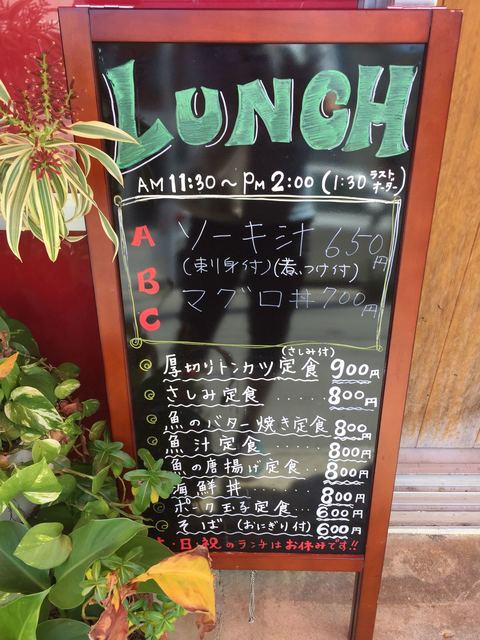 LUNCH
AM 11:30～PM 2:00 (1:30 ラストオーダー)
A ソーキ汁 650円
B (刺身付)(煮つけ付)
C マグロ丼 700円
(さしみ付)
厚切りトンカツ定食 900円
さしみ定食 ..... 800円
魚のバター焼き定食 800円
魚汁定食 ..... 800円
魚の唐揚げ定食 ... 800円
海鮮丼 ..... 800円
ポーク玉子定食 ... 600円
そば (おにぎり付) 600円
・日・祝のランチはお休みです!!